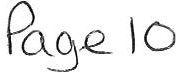 Page 10